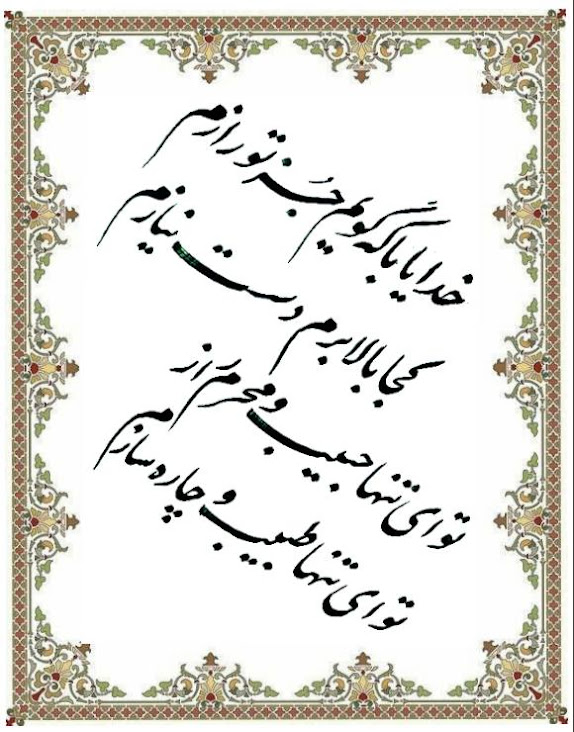 خدایا با که گویم جُز تو رازم
کجا بالا برم دست نیازم
تو ای تنها حبیب و محرم راز
تو ای تنها طبیب و چاره سازم